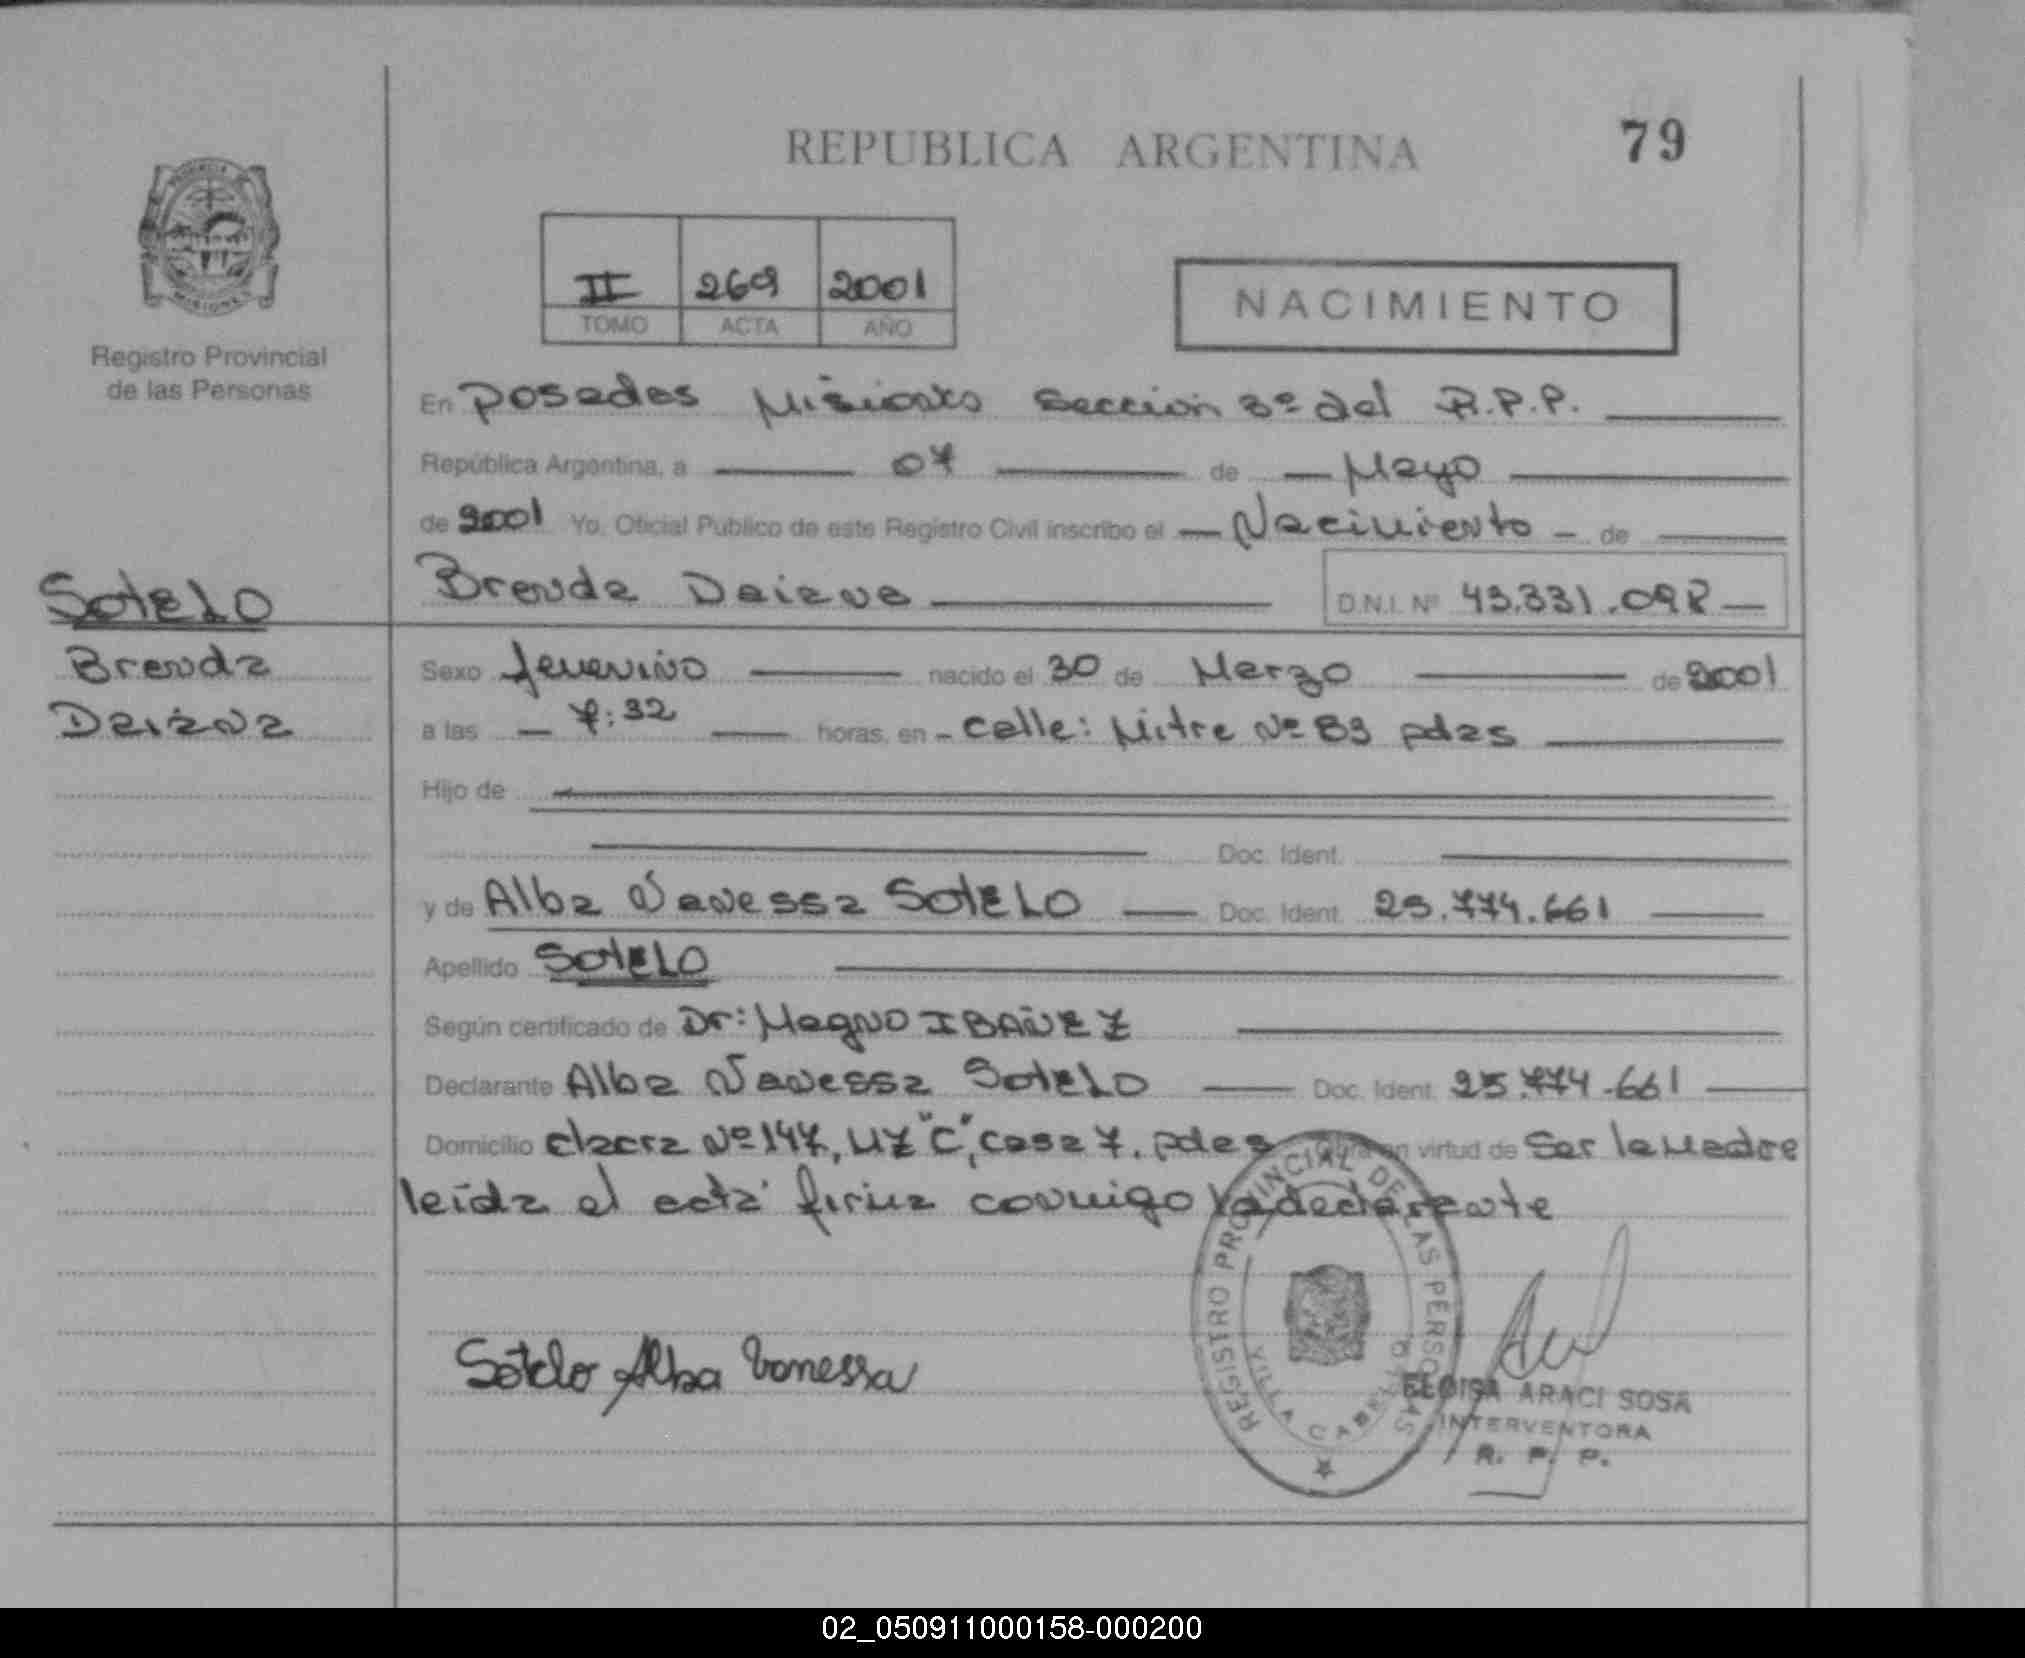 REPUBLICA ARGENTINA
79
II 269 2001
TOMO ACTA AÑO
NACIMIENTO
Registro Provincial
de las Personas
En Posadas Misiones Sección 3º del R.P.P.
República Argentina, a 07 de Mayo
de 2001 Yo, Oficial Publico de este Registro Civil inscribo el Nacimiento de
Brenda Daiana D.N.I. Nº 43.331.098
SOTELO
Brenda
Daiana
Sexo femenino nacido el 30 de Marzo de 2001
a las 7:32 horas, en calle: Mitre Nº 83 pdas
Hijo de
Doc. Ident.
y de Alba Vanessa SOTELO Doc. Ident. 25.774.661
Apellido SOTELO
Según certificado de Dr: Magno IBAÑEZ
Declarante Alba Vanessa SOTELO Doc. Ident. 25.774.661
Domicilio chacra Nº 147, MZ "C", casa 7. pdas en virtud de Ser la Madre
leída el acta firma conmigo la declarante
Sotelo Alba Vanessa
REGISTRO PROVINCIAL DE LAS PERSONAS
VILLA CABELLO
ELOISA ARACI SOSA
INTERVENTORA
R. P. P.
02_050911000158-000200